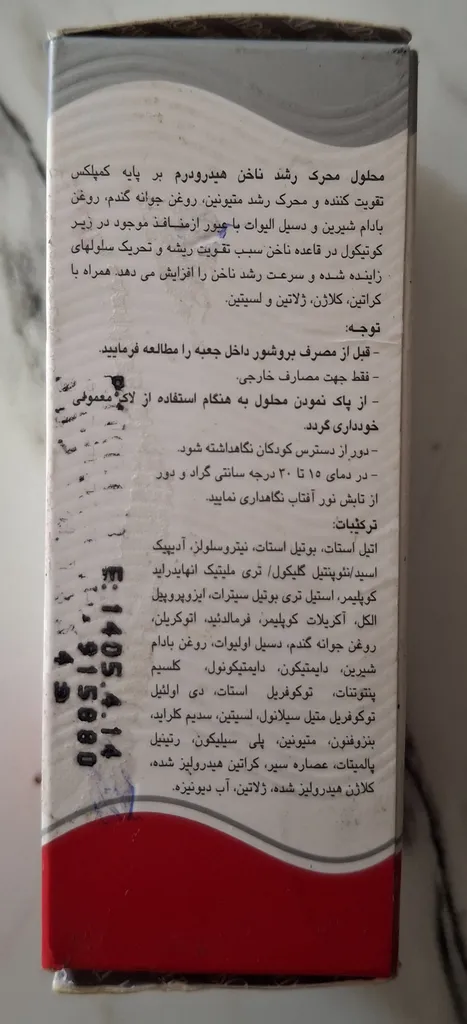 محلول محرک رشد ناخن هیدرودرم بر پایه کمپلکس
تقویت کننده و محرک رشد متیونین، روغن جوانه گندم، روغن
بادام شیرین و دسیل الیوات با عبور از منافذ موجود در زیر
کوتیکول در قاعده ناخن سبب تقویت ریشه و تحریک سلولهای
زاینده شده و سرعت رشد ناخن را افزایش می دهد. همراه با
کراتین، کلاژن، ژلاتین و لسیتین.
توجه:
- قبل از مصرف بروشور داخل جعبه را مطالعه فرمایید.
- فقط جهت مصارف خارجی.
- از پاک نمودن محلول به هنگام استفاده از لاک معمولی
خودداری گردد.
- دور از دسترس کودکان نگاهداشته شود.
- در دمای ۱۵ تا ۳۰ درجه سانتی گراد و دور
از تابش نور آفتاب نگاهداری نمایید.
ترکیبات:
اتیل استات، بوتیل استات، نیتروسلولز، آدیپیک
اسید/نئوپنتیل گلیکول/ تری ملیتیک انهایدراید
کوپلیمر، استیل تری بوتیل سیترات، ایزوپروپیل
الکل، آکریلات کوپلیمر، فرمالدئید، اتوکریلن،
روغن جوانه گندم، دسیل اولیوات، روغن بادام
شیرین، دایمتیکون، دایمتیکونول، کلسیم
پنتوتنات، توکوفریل استات، دی اولئیل
توکوفریل متیل سیلانول، لسیتین، سدیم کلراید،
بنزوفنون، متیونین، پلی سیلیکون، رتینیل
پالمیتات، عصاره سیر، کراتین هیدرولیز شده،
کلاژن هیدرولیز شده، ژلاتین، آب دیونیزه.
E: 1405.4.14